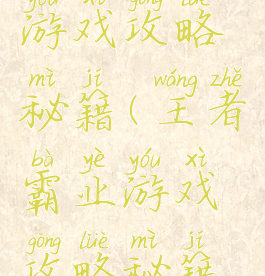 yóu xì gōng lüè
游戏攻略
mì jí wáng zhě
秘籍(王者
bà yè yóu xì
霸业游戏
gōng lüè mì jí
攻略秘籍